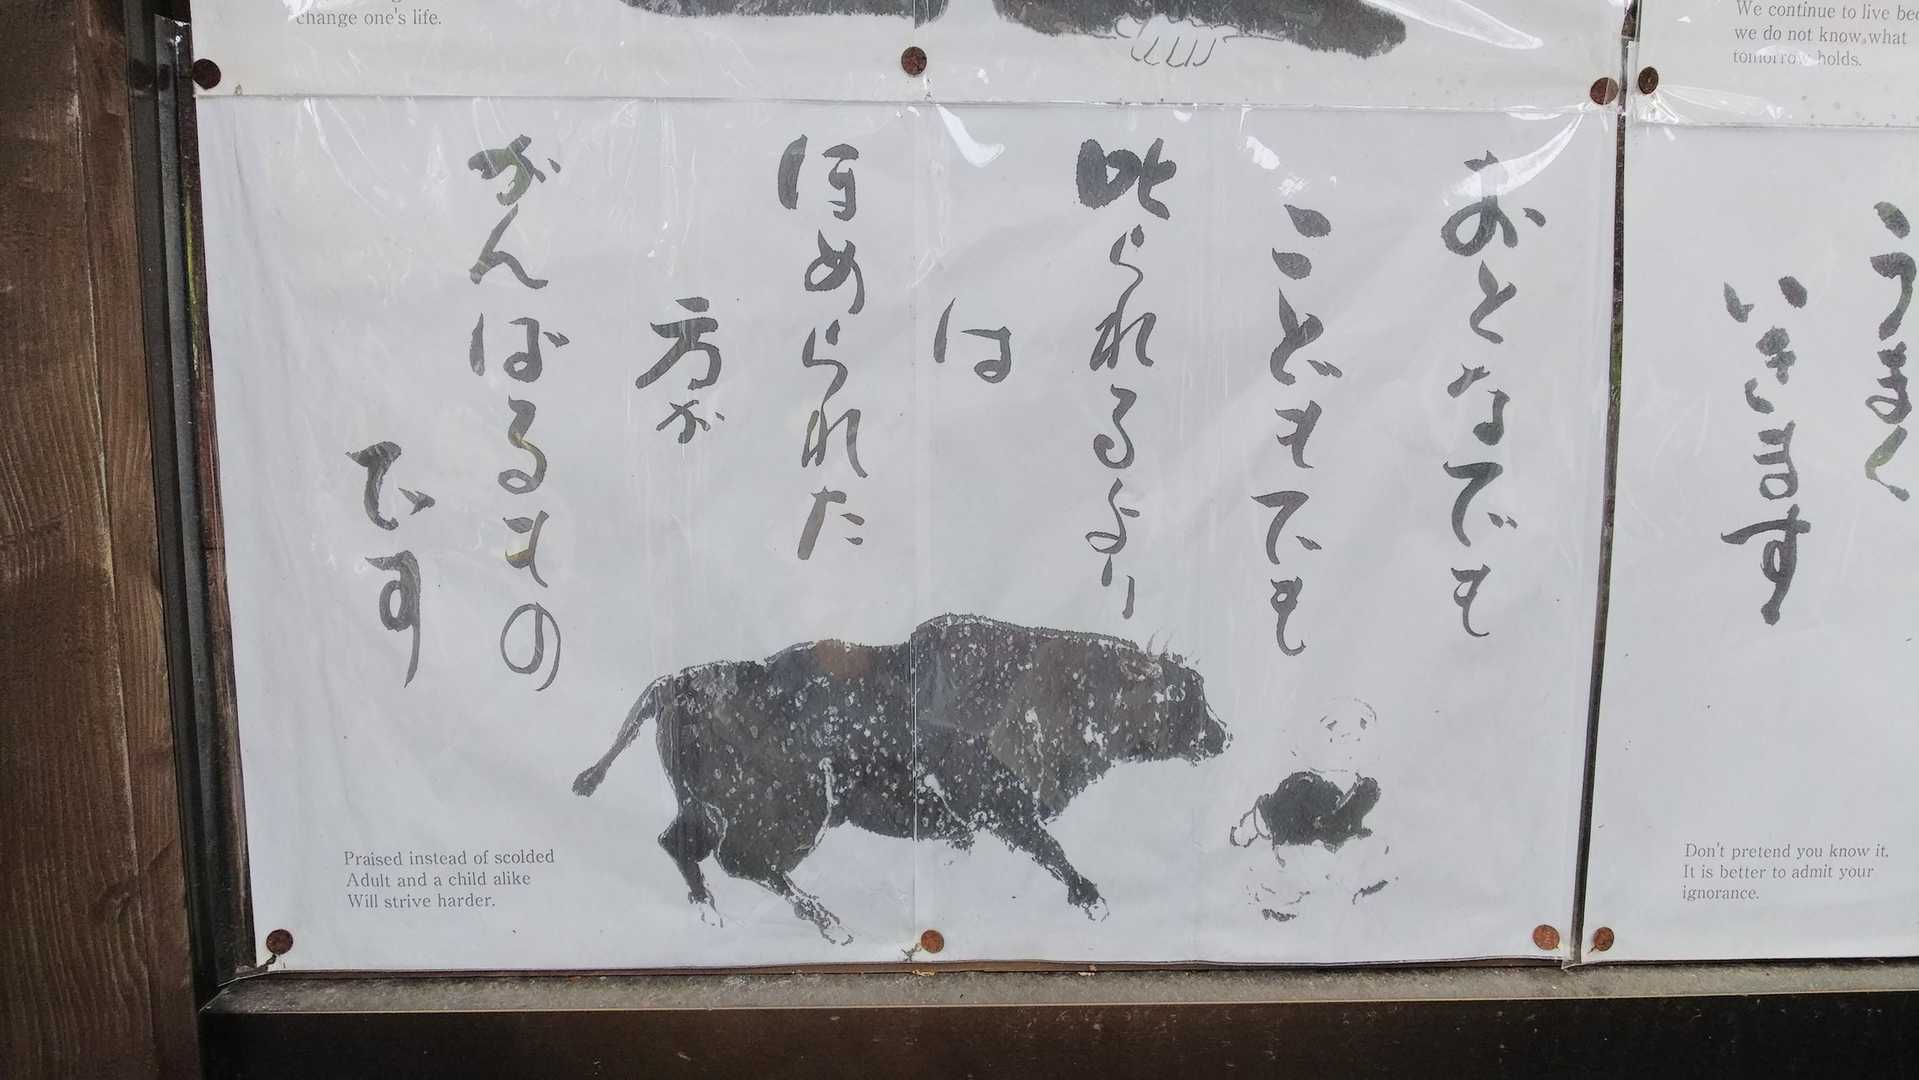 change one's life.
We continue to live
we do not know what
tomorrow holds.
おとなでも
こどもでも
叱られるより
は
ほめられた
方が
がんばるもの
です
Praised instead of scolded
Adult and a child alike
Will strive harder.
うまく
いきます
Don't pretend you know it.
It is better to admit your
ignorance.